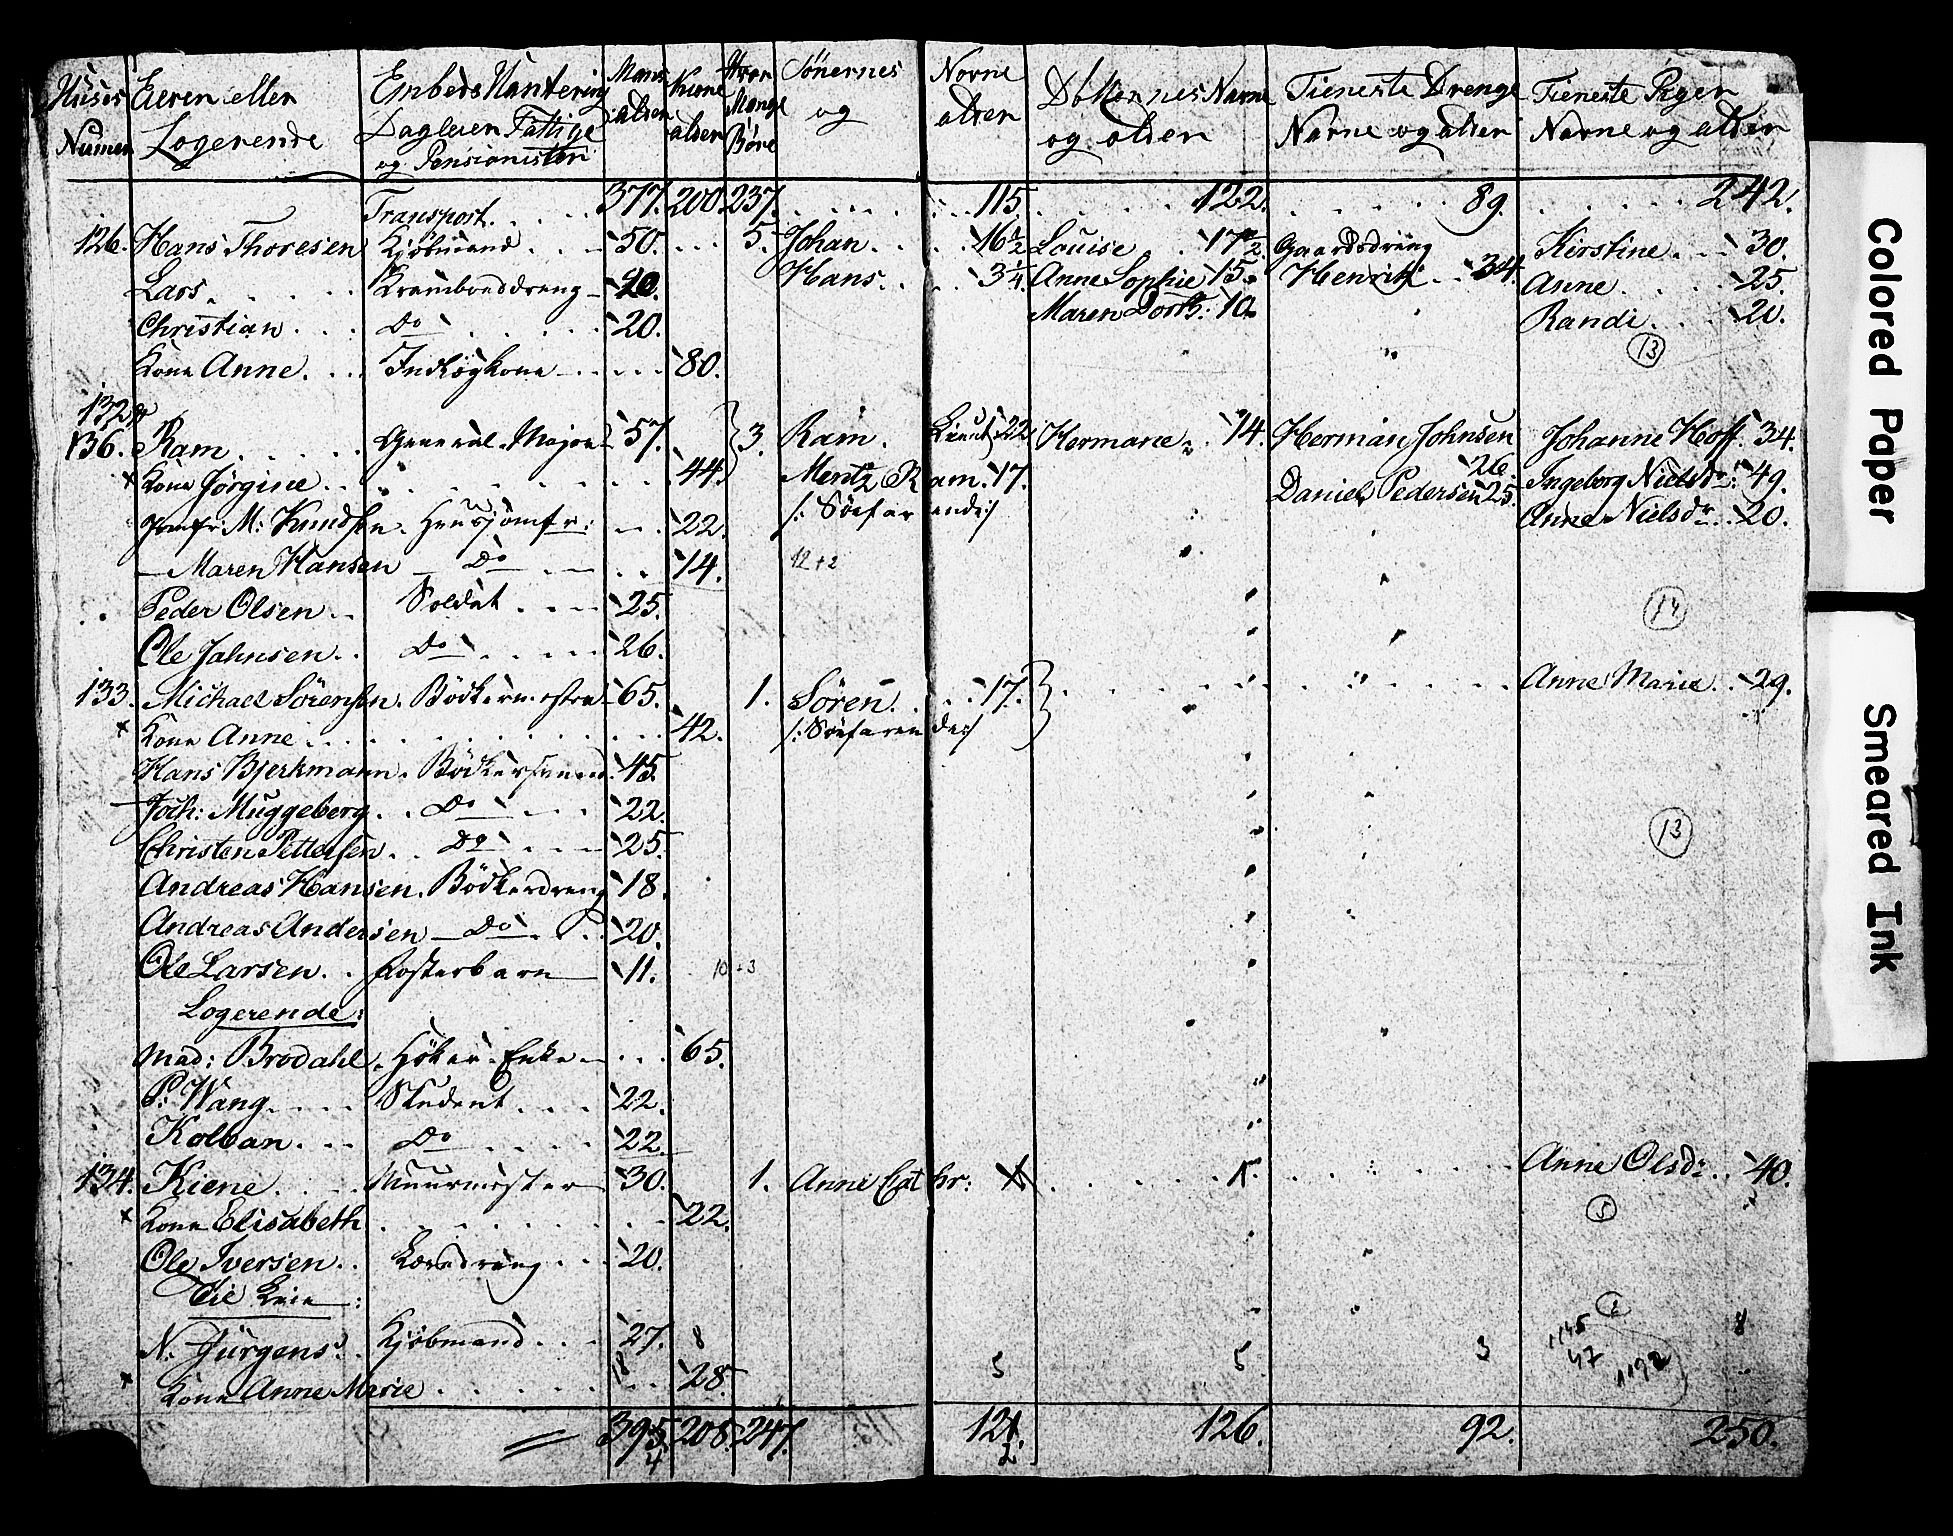 Huses Eieren eller Embeds Hantering Mans Kione Hvor Sønernes Navne Døttrenes Navne Tieneste Drenge Tieneste Piger
Numer Logerende Dagleien Fattige alder alder Mange og alder og alder Navne og alder Navne og alder
og Pensionister Børe
Transport 377. 200. 237. 115 122. 89. 242.
126. Hans Thoresen Kjøbmand 50. 5. Johan 16 1/2 Louise 17 1/2 Gaardsdreng Kirstine 30.
Lars Kramboddreng 20. Hans 3 1/4 Anne Sophie 15 Henrik 34. Anne 25
Christian Do 20. Maren Dorth: 10 Randi 20.
Kone Anne Indkiøgkone 80. 13
132 &
136. Ram General-Major 57. 3. Ram Lieut 22 Hermane 14. Herman Johnsen 26 Johanne Hoff 34.
× Kone Jørgine 44. Mentz Ram 17. Daniel Pedersen 25 Ingeborg Nielsdr: 49.
Jomfr: M: Knudsen Huusjomfr: 22. /: Søefarende :/ Anne Nielsdr 20.
— Maren Hansen — Do — 14. 12 + 2
Peder Olsen Soldat 25. 14
Ole Jahnsen Do 26.
133. Michael Sörensen Bödkermester 65. 1. Sören 17. Anne Marie 29.
× Kone Anne 42. /: Søefarende :/
Hans Bjerkmann Bödkersvend 45.
Joch: Muggeberg Do 22.
Christen Pettersen Do 25. 13
Andreas Hansen Bödkerdreng 18.
Andreas Andersen — Do 20.
Ole Larsen Fosterbarn 11. 10 + 3
Logerende:
Mad: Brodahl Høker-Enke 65.
P: Wang Student 22.
Kolban Do 22.
134. Kiene Muurmester 30. 1. Anne Cathr: 1 1. Anne Olsdr 40.
× Kone Elisabeth 22. 5
Ole Iversen Læredreng 20.
Til Leie:
N. Jürgens Kjøbmand 27. 8 5 5 3 1145 2 8
× Kone Anne Marie 18 28. 47 1192
395. 208. 247. 121. 126. 92. 250.
4 2
Colored Paper
Smeared Ink